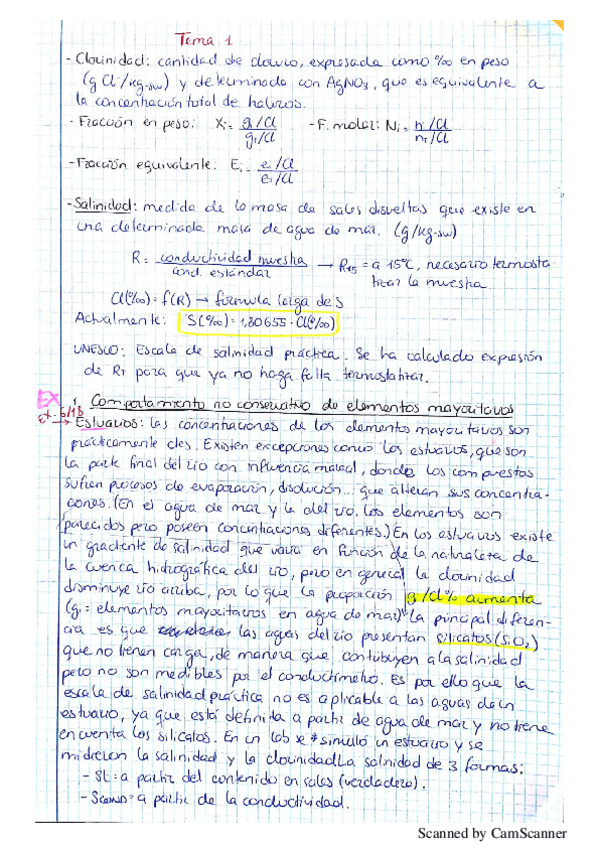 Tema 1
- Clorinidad: cantidad de cloruro, expresada como ‰ en peso
(g Cl⁻/kg-sw) y determinada con AgNO3, que es equivalente a
la concentración total de haluros.
- Fracción en peso: Xi = gi/Cl / gT/Cl - F. molar: Ni = ni/Cl / nT/Cl
- Fracción equivalente: Ei = ei/Cl / eT/Cl
- Salinidad: medida de la masa de sales disueltas que existe en
una determinada masa de agua de mar. (g/kg-sw)
R = conductividad muestra / cond. estándar → R15 = a 15ºC, necesario termosta-
tizar la muestra
Cl(‰) = f(R) → fórmula larga de S
Actualmente: S(‰) = 1,80655 · Cl(‰)
UNESCO: Escala de salinidad práctica. Se ha calculado expresión
de RT para que ya no haga falta termostatizar.
EX
1. Comportamiento no conservativo de elementos mayoritarios
→ Estuarios: las concentraciones de los elementos mayoritarios son
prácticamente ctes. Existen excepciones como los estuarios, que son
la parte final del río con influencia mareal, donde los compuestos
sufren procesos de evaporación, disolución... que alteran sus concentra-
ciones. (En el agua de mar y la del río, los elementos son
parecidos pero poseen concentraciones diferentes.) En los estuarios existe
un gradiente de salinidad que varía en función de la naturaleza de
la cuenca hidrográfica del río, pero en general la clorinidad
disminuye río arriba, por lo que la proporción gi/Cl‰ aumenta
(gi = elementos mayoritarios en agua de mar) la principal diferen-
cia es que las aguas del río presentan silicatos (SiO2)
que no tienen carga, de manera que contribuyen a la salinidad
pero no son medibles por el conductímetro. Es por ello que la
escala de salinidad práctica no es aplicable a las aguas de un
estuario, ya que está definida a partir de agua de mar y no tiene
en cuenta los silicatos. En un lab se * simuló un estuario y se
midieron la salinidad y la clorinidad. La salinidad de 3 formas:
- St: a partir del contenido en sales (verdadero).
- Scond: a partir de la conductividad.
Scanned by CamScanner